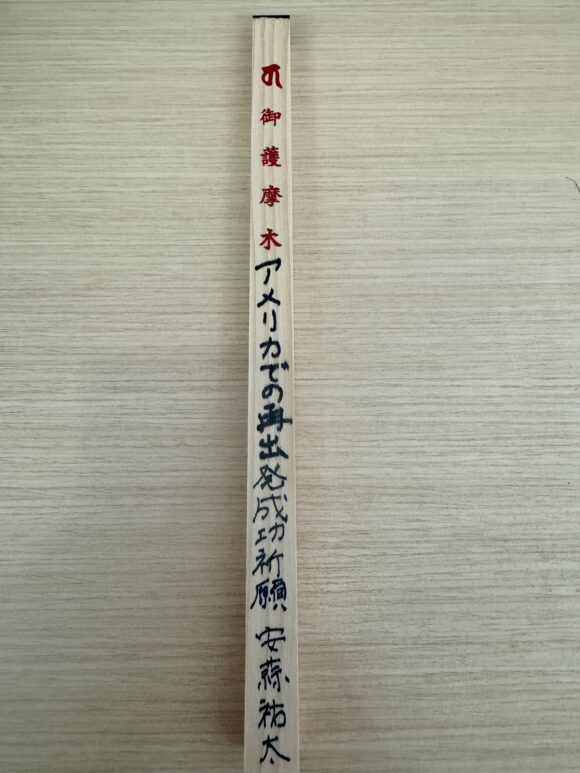 御護摩木
アメリカでの再出発成功祈願 安藤祐太